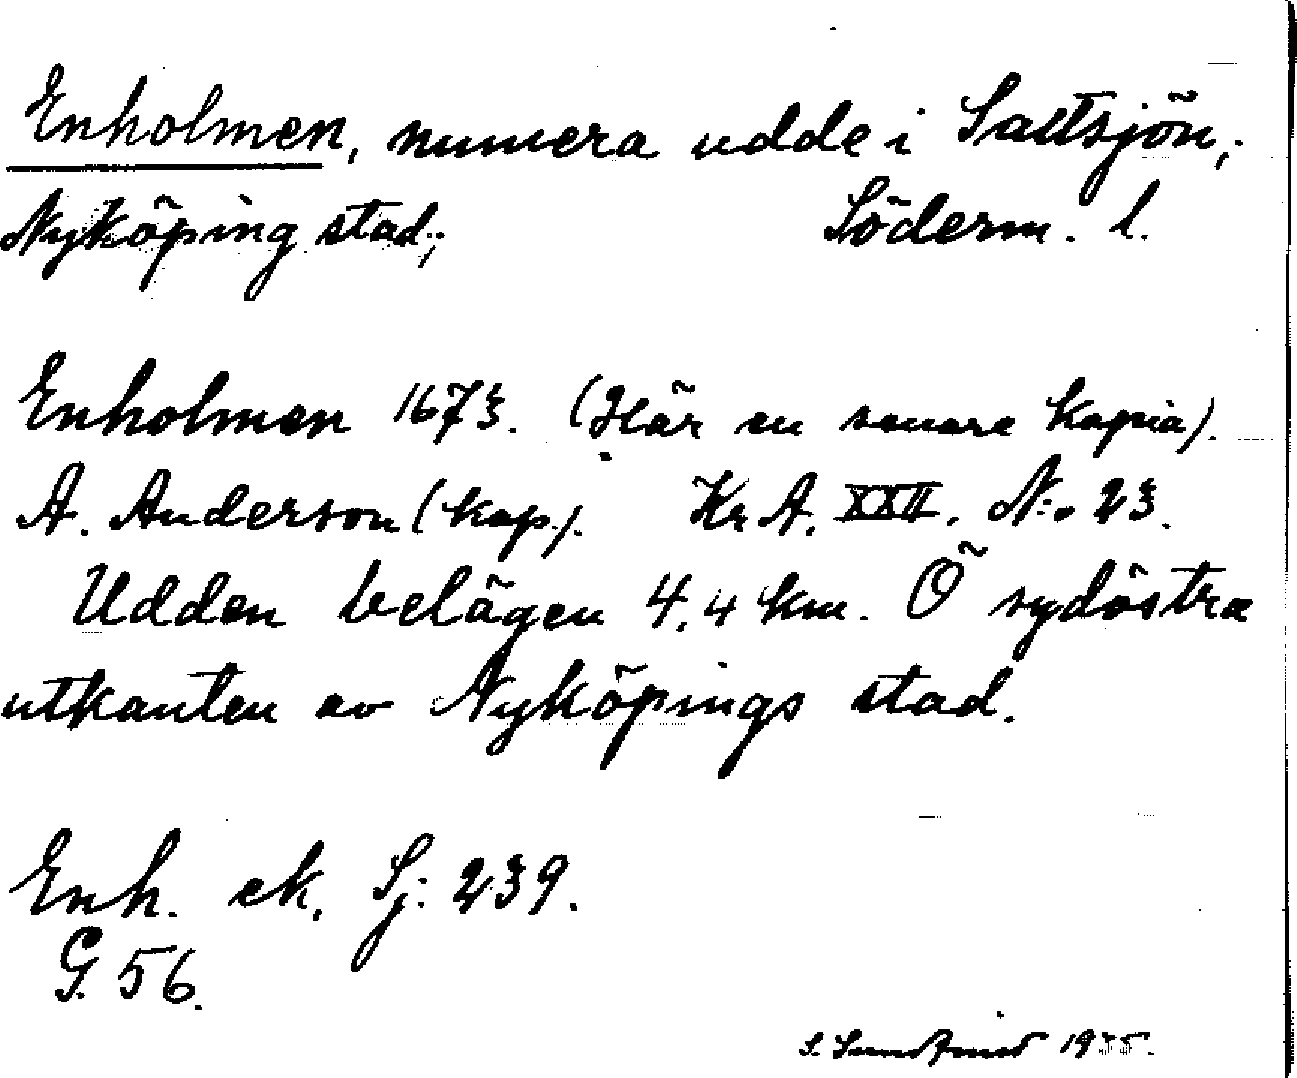 Enholmen, numera udde i Saltsjön,
Nyköping stad, Söderm. l.
Enholmen 1673. (Här en senare kopia).
A. Anderson (kop.). Kr A. XXII. N:o 23.
Udden belägen 4,4 km. Ö sydöstra
utkanten av Nyköpings stad.
Enh. ek. Sj: 239.
G. 56.
S. 1935.